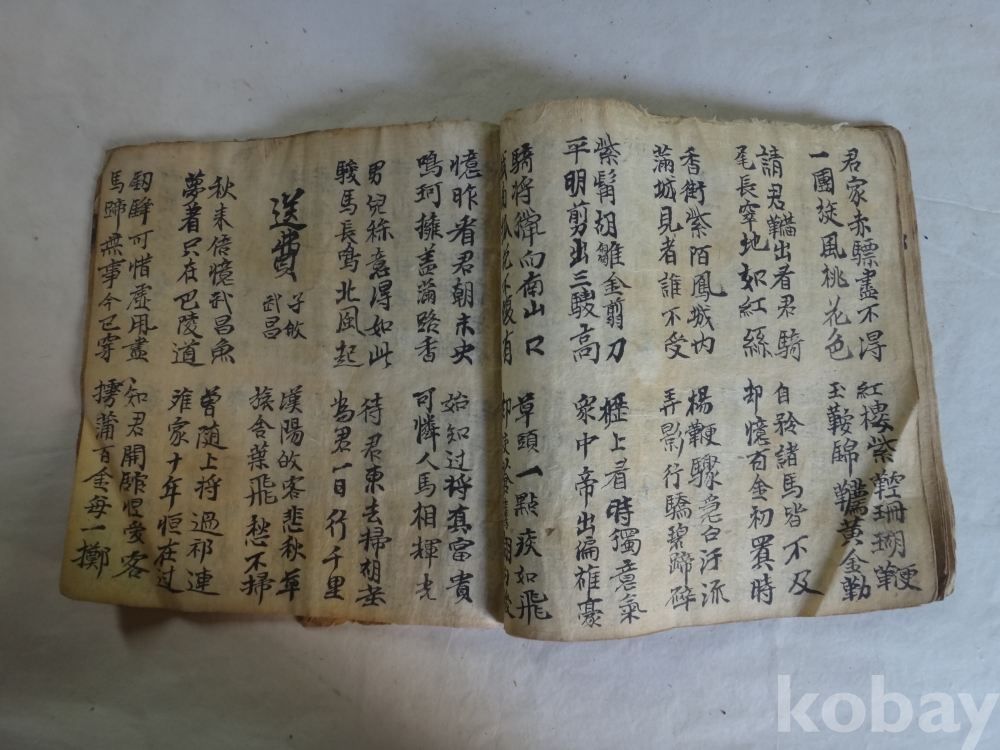 君家赤驃盡不得
一團旋風桃花色
紅樓紫鞚珊瑚鞭
玉鞍錦韉黃金勒
請君韝出看君騎
尾長窣地如紅絲
自矜諸馬皆不及
却憶百金初買時
香街紫陌鳳城内
滿城見者誰不受
楊鞭驟急白汗流
弄影行驕碧蹄碎
紫髯胡雛金剪刀
平明剪出三騣高
櫪上看時獨意氣
衆中帝出偏雄豪
騎將獵向南山口
草頭一點疾如飛
憶昨看君朝未央
鳴珂擁盖滿路香
始知过将真富貴
可憐人馬相輝光
男兒称意得如此
駿馬長鳴北風起
待君東去掃胡尘
為君一日行千里
送費
子敀
武昌
漢陽敀客悲秋草
旅舍葉飛愁不掃
秋来倍憶武昌魚
夢着只在巴陵道
曾随上将過祁連
離家十年恒在过
釰鋒可惜虛用盡
馬蹄無事今已穿
知君開館恒愛客
摴蒲百金每一擲